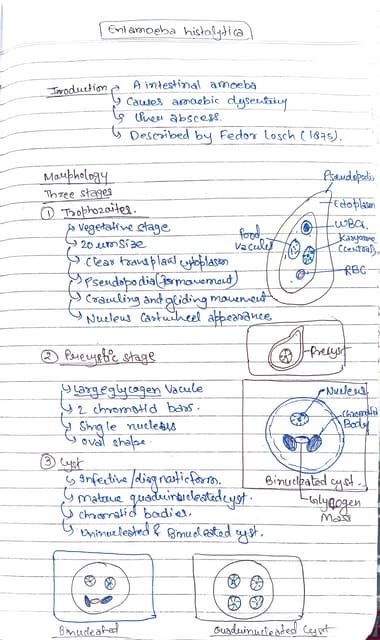 Entamoeba histolytica
Introduction → A intestinal amoeba
↳ Causes amoebic dysentery
↳ liver abscess.
↳ Described by Fedor Losch (1875).
Morphology
Three stages
① Trophozoites.
↳ Vegetative stage
↳ 20 um size
↳ Clear transplant cytoplasm
↳ Pseudopodia (for movement)
↳ Crawling and gliding movement
↳ Nucleus Cartwheel appearance
Pseudopodia
Ectoplasm
WBCs
Karyosome (central).
RBC
Food Vacules
② Precystic stage
↳ Large glycogen Vacule
↳ 2 chromatid bars.
↳ Single nucleus
↳ oval shape.
Precyst
③ Cyst
↳ Infective/diagnostic form.
↳ Mature quadrinucleated cyst.
↳ Chromatid bodies.
↳ Uninucleated & Binucleated cyst.
Nucleus
Chromatid Body
Binucleated cyst.
Glycogen Mass
Binucleated
Quadrinucleated Cyst